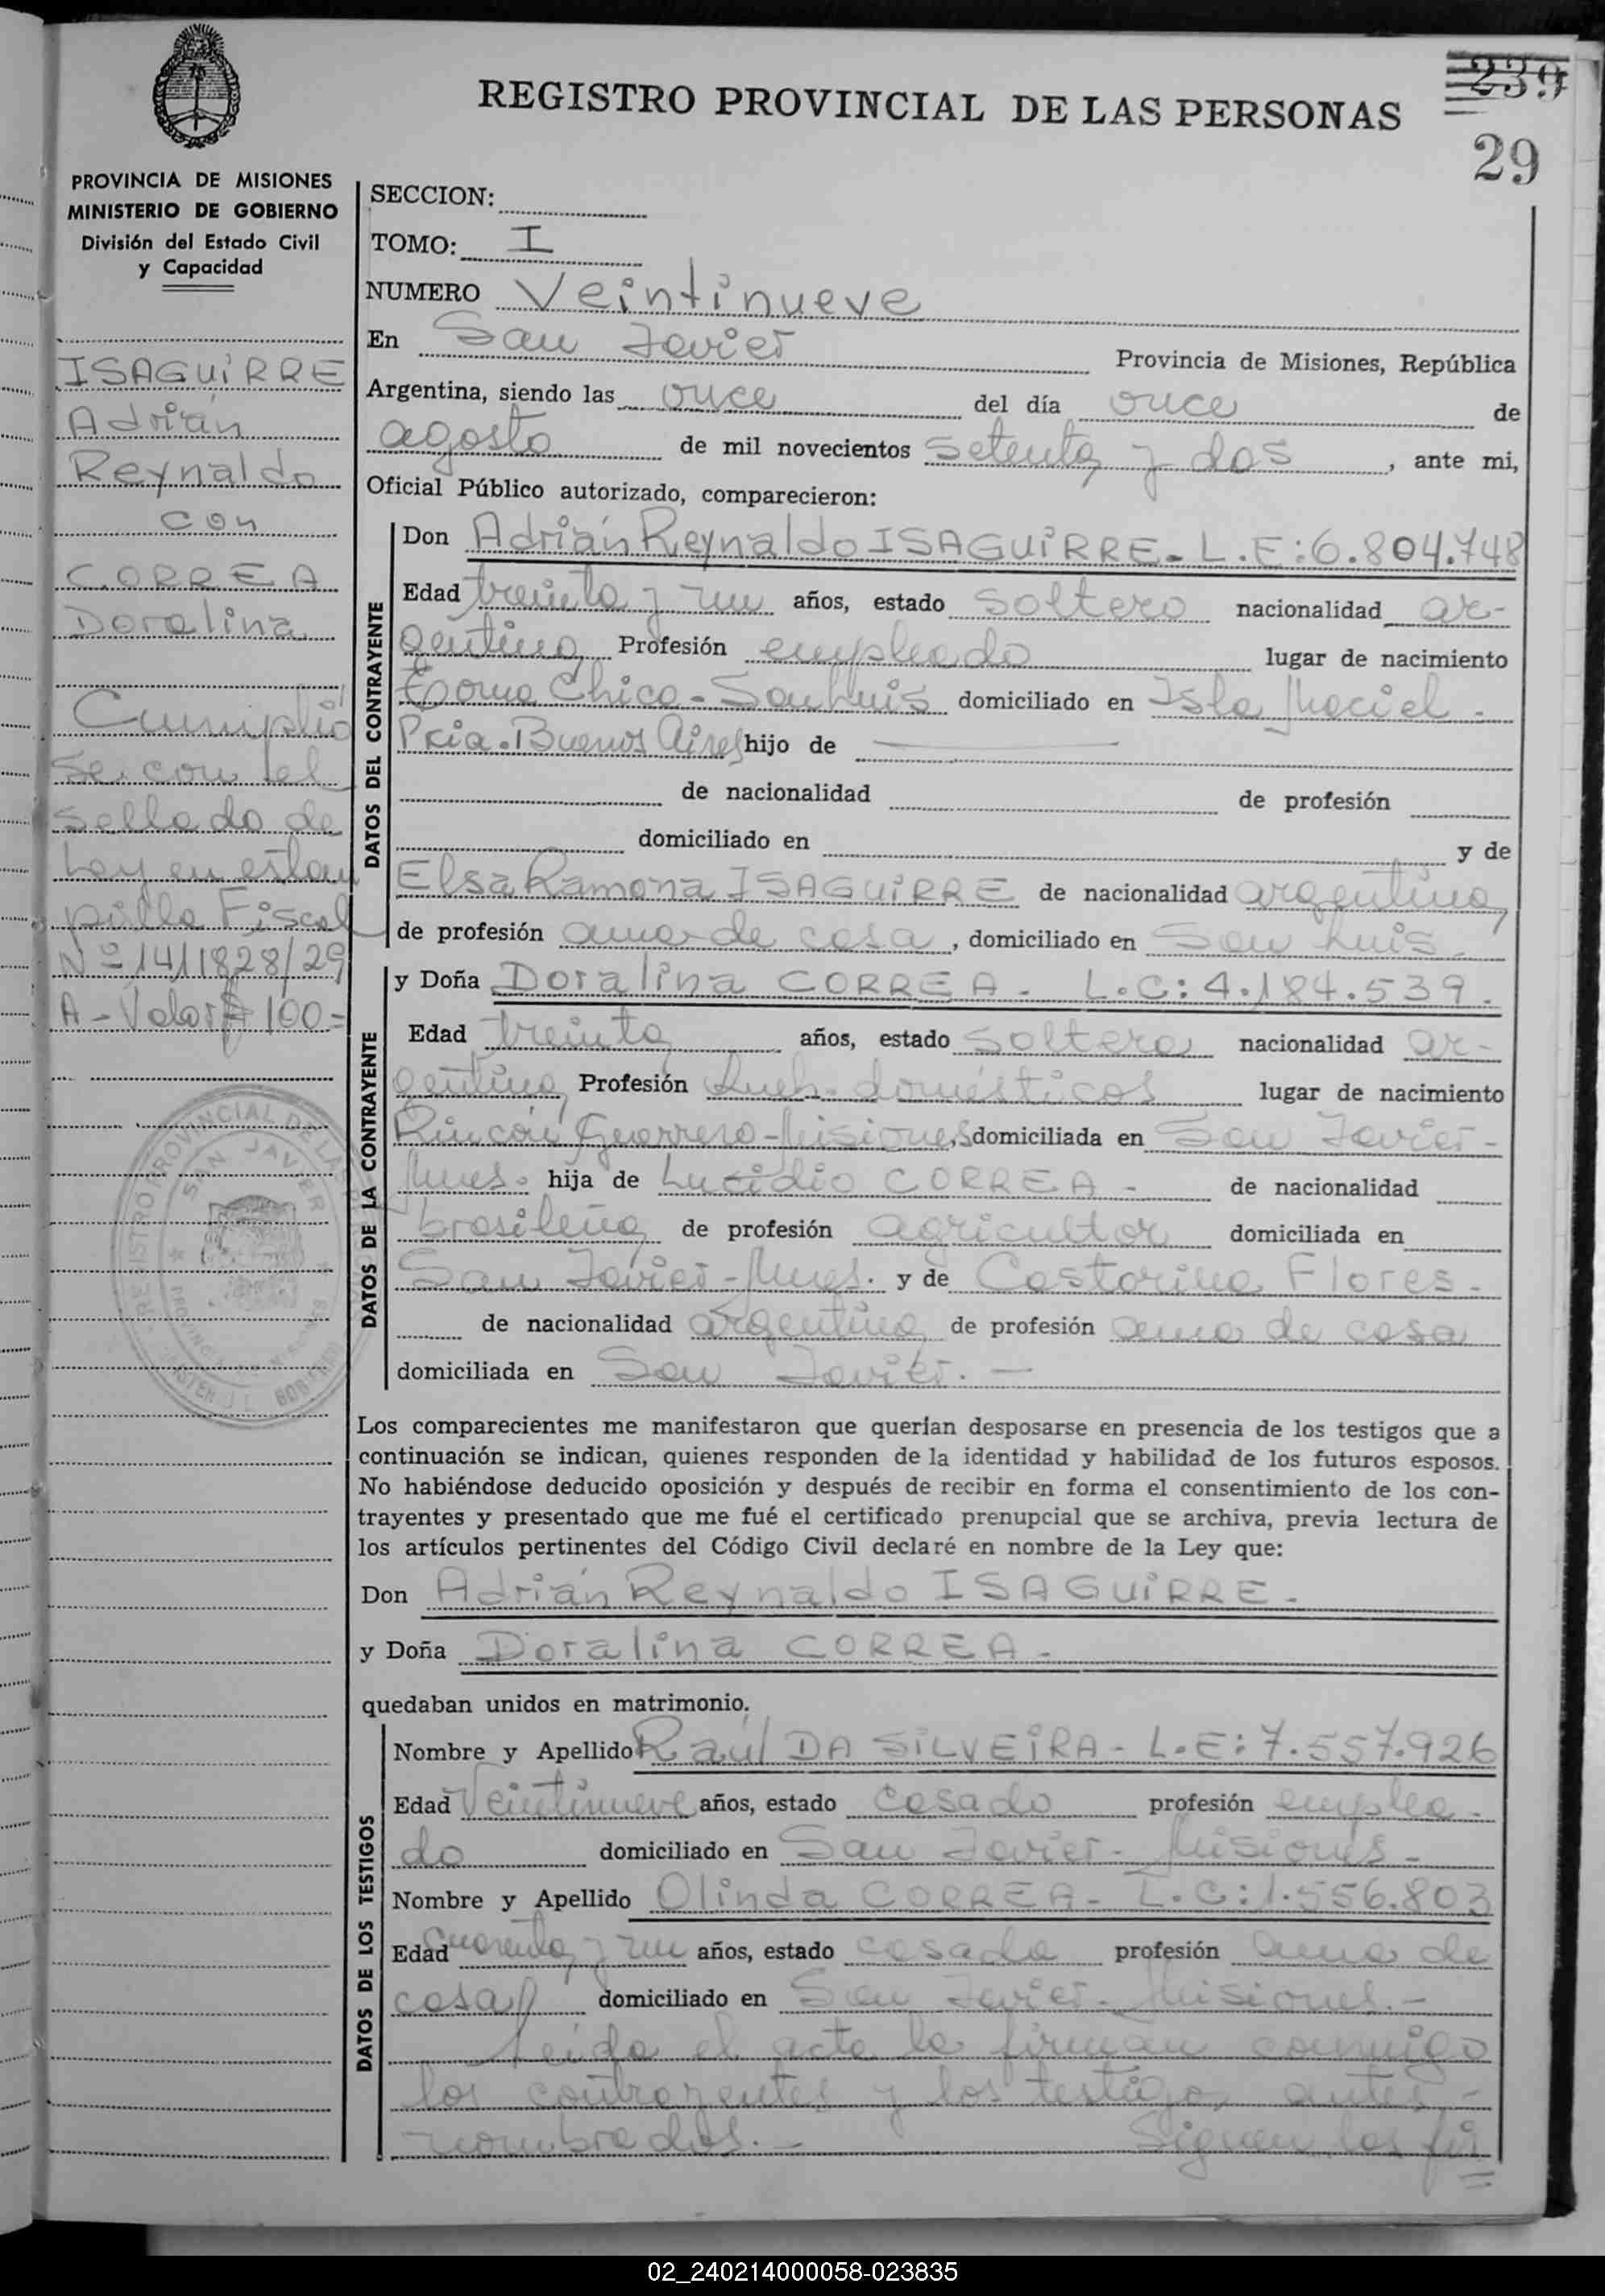 REGISTRO PROVINCIAL DE LAS PERSONAS
239
29
PROVINCIA DE MISIONES
MINISTERIO DE GOBIERNO
División del Estado Civil
y Capacidad
ISAGUIRRE
Adrián
Reynaldo
con
CORREA
Doralina
Cumplió
se con el
sellado de
Ley en estam
pilla Fiscal
Nº 1411828/29
A - Valor $ 100=
SECCION:
TOMO: I
NUMERO Veintinueve
En San Javier Provincia de Misiones, República
Argentina, siendo las once del día once de
agosto de mil novecientos setenta y dos, ante mi,
Oficial Público autorizado, comparecieron:
DATOS DEL CONTRAYENTE
Don Adrián Reynaldo ISAGUIRRE. L.E: 6.804.748
Edad treinta y un años, estado soltero nacionalidad ar-
gentina Profesión empleado lugar de nacimiento
Chica - San Luis domiciliado en Isla Maciel -
Pcia. Buenos Aires hijo de
de nacionalidad de profesión
domiciliado en y de
Elsa Ramona ISAGUIRRE de nacionalidad argentina,
de profesión ama de casa, domiciliado en San Luis.
DATOS DE LA CONTRAYENTE
y Doña Doralina CORREA. L.C: 4.184.539.
Edad treinta años, estado soltera nacionalidad ar-
gentina Profesión Queh. domésticos lugar de nacimiento
Rincón Guerrero - Misiones, domiciliada en San Javier -
Mnes. hija de Lucidio CORREA - de nacionalidad
brasileña de profesión agricultor domiciliada en
San Javier - Mnes. y de Castorina Flores.
de nacionalidad argentina de profesión ama de casa
domiciliada en San Javier. —
REGISTRO PROVINCIAL DE LAS
SAN JAVIER
PROVINCIA DE MISIONES
Los comparecientes me manifestaron que querían desposarse en presencia de los testigos que a
continuación se indican, quienes responden de la identidad y habilidad de los futuros esposos.
No habiéndose deducido oposición y después de recibir en forma el consentimiento de los con-
trayentes y presentado que me fué el certificado prenupcial que se archiva, previa lectura de
los artículos pertinentes del Código Civil declaré en nombre de la Ley que:
Don Adrián Reynaldo ISAGUIRRE -
y Doña Doralina CORREA -
quedaban unidos en matrimonio.
DATOS DE LOS TESTIGOS
Nombre y Apellido Raúl DA SILVEIRA - L.E: 7.557.926
Edad Veintinueve años, estado casado profesión emplea-
do domiciliado en San Javier - Misiones -
Nombre y Apellido Olinda CORREA - L.C: 1.556.803
Edad Cuarenta y un años, estado casada profesión ama de
casa domiciliado en San Javier - Misiones. -
Leída el acta la firman conmigo
los contrayentes y los testigos antes -
nombrados. — Siguen las fir
02_240214000058-023835